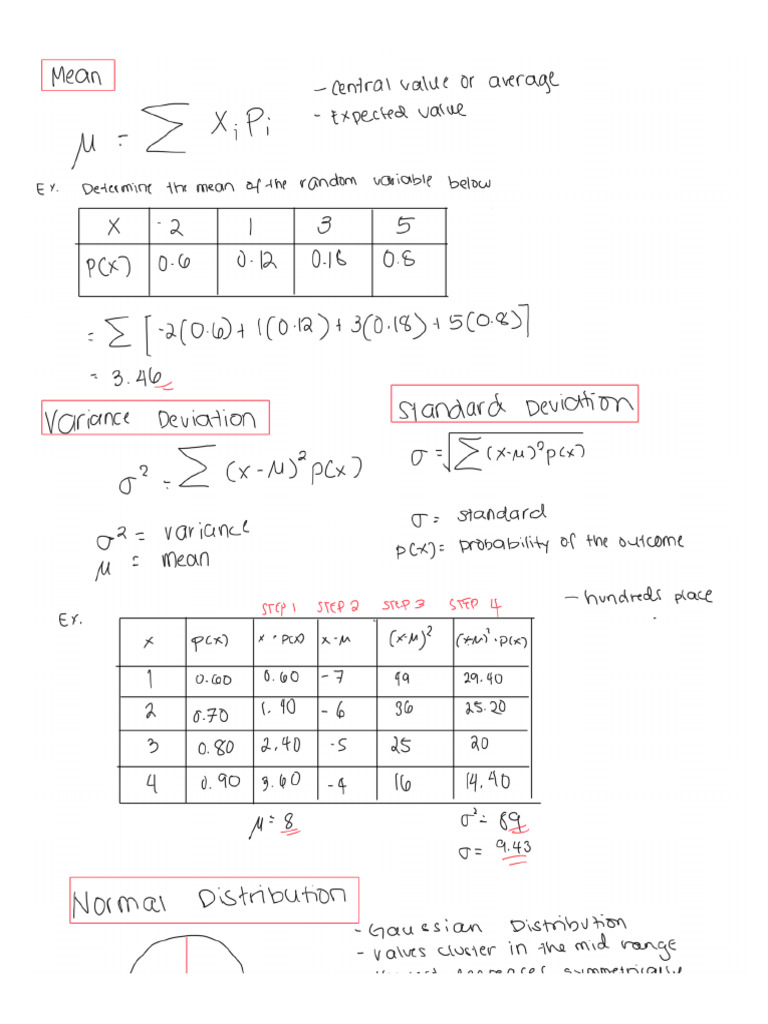 Mean
- Central value or average
- Expected value
μ = Σ XᵢPᵢ
Ex. Determine the mean of the random variable below
X -2 1 3 5
P(X) 0.6 0.12 0.18 0.8
= Σ [-2(0.6) + 1(0.12) + 3(0.18) + 5(0.8)]
= 3.46
Variance Deviation
Standard Deviation
σ² = Σ (x-μ)² p(x)
σ = √Σ(x-μ)² p(x)
σ² = variance
μ = mean
σ = standard
p(x) = probability of the outcome
- hundreds place
Ex.
STEP 1 STEP 2 STEP 3 STEP 4
x p(x) x · p(x) x-μ (x-μ)² (x-μ)² · p(x)
1 0.60 0.60 -7 49 29.40
2 0.70 1.40 -6 36 25.20
3 0.80 2.40 -5 25 20
4 0.90 3.60 -4 16 14.40
μ = 8
σ² = 89
σ = 9.43
Normal Distribution
- Gaussian Distribution
- values cluster in the mid range
symmetrically